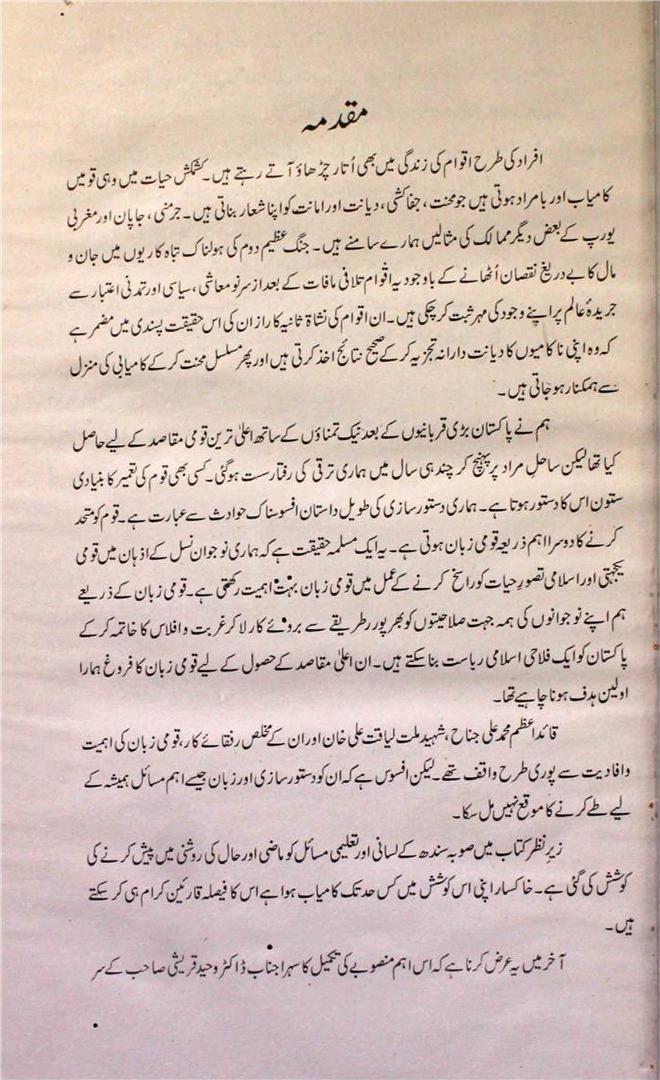 مقدمہ
افراد کی طرح اقوام کی زندگی میں بھی اُتار چڑھاؤ آتے رہتے ہیں۔ کشمکش حیات میں وہی قومیں
کامیاب اور بامراد ہوتی ہیں جو محنت، جفاکشی، دیانت اور امانت کو اپنا شعار بناتی ہیں۔ جرمنی، جاپان اور مغربی
یورپ کے بعض دیگر ممالک کی مثالیں ہمارے سامنے ہیں۔ جنگ عظیم دوم کی ہولناک تباہ کاریوں میں جان و
مال کا بے دریغ نقصان اُٹھانے کے باوجود یہ اقوام تلافی مافات کے بعد از سرنو معاشی، سیاسی اور تمدنی اعتبار سے
جریدۂ عالم پر اپنے وجود کی مہر ثبت کر چکی ہیں۔ ان اقوام کی نشاۃ ثانیہ کا راز ان کی اس حقیقت پسندی میں مضمر ہے
کہ وہ اپنی ناکامیوں کا دیانت دارانہ تجزیہ کر کے صحیح نتائج اخذ کرتی ہیں اور پھر مسلسل محنت کر کے کامیابی کی منزل
سے ہمکنار ہو جاتی ہیں۔
ہم نے پاکستان بڑی قربانیوں کے بعد نیک تمناؤں کے ساتھ اعلیٰ ترین قومی مقاصد کے لیے حاصل
کیا تھا لیکن ساحلِ مراد پر پہنچ کر چند ہی سال میں ہماری ترقی کی رفتار سست ہوگئی۔ کسی بھی قوم کی تعمیر کا بنیادی
ستون اس کا دستور ہوتا ہے۔ ہماری دستور سازی کی طویل داستان افسوسناک حوادث سے عبارت ہے۔ قوم کو متحد
کرنے کا دوسرا اہم ذریعہ قومی زبان ہوتی ہے۔ یہ ایک مسلمہ حقیقت ہے کہ ہماری نوجوان نسل کے اذہان میں قومی
یکجہتی اور اسلامی تصورِ حیات کو راسخ کرنے کے عمل میں قومی زبان بہت اہمیت رکھتی ہے۔ قومی زبان کے ذریعے
ہم اپنے نوجوانوں کی ہمہ جہت صلاحیتوں کو بھرپور طریقے سے بروئے کار لا کر غربت و افلاس کا خاتمہ کر کے
پاکستان کو ایک فلاحی اسلامی ریاست بنا سکتے ہیں۔ ان اعلیٰ مقاصد کے حصول کے لیے قومی زبان کا فروغ ہمارا
اولین ہدف ہونا چاہیے تھا۔
قائد اعظم محمد علی جناح، شہید ملت لیاقت علی خان اور ان کے مخلص رفقائے کار، قومی زبان کی اہمیت
و افادیت سے پوری طرح واقف تھے۔ لیکن افسوس ہے کہ ان کو دستور سازی اور زبان جیسے اہم مسائل ہمیشہ کے
لیے طے کرنے کا موقع نہیں مل سکا۔
زیرِ نظر کتاب میں صوبہ سندھ کے لسانی اور تعلیمی مسائل کو ماضی اور حال کی روشنی میں پیش کرنے کی
کوشش کی گئی ہے۔ خاکسار اپنی اس کوشش میں کس حد تک کامیاب ہوا ہے اس کا فیصلہ قارئین کرام ہی کر سکتے
ہیں۔
آخر میں یہ عرض کرنا ہے کہ اس اہم منصوبے کی تکمیل کا سہرا جناب ڈاکٹر وحید قریشی صاحب کے سر